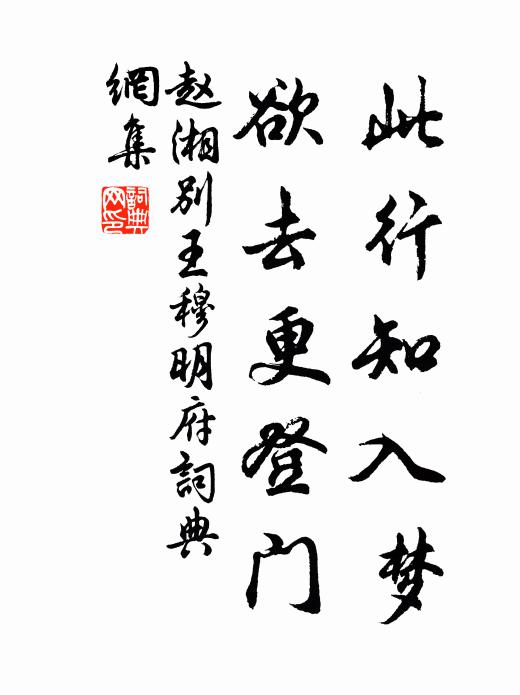 此行知入梦
欲去更登门
赵湘别王穆明府詞典
網集
詞典
网印